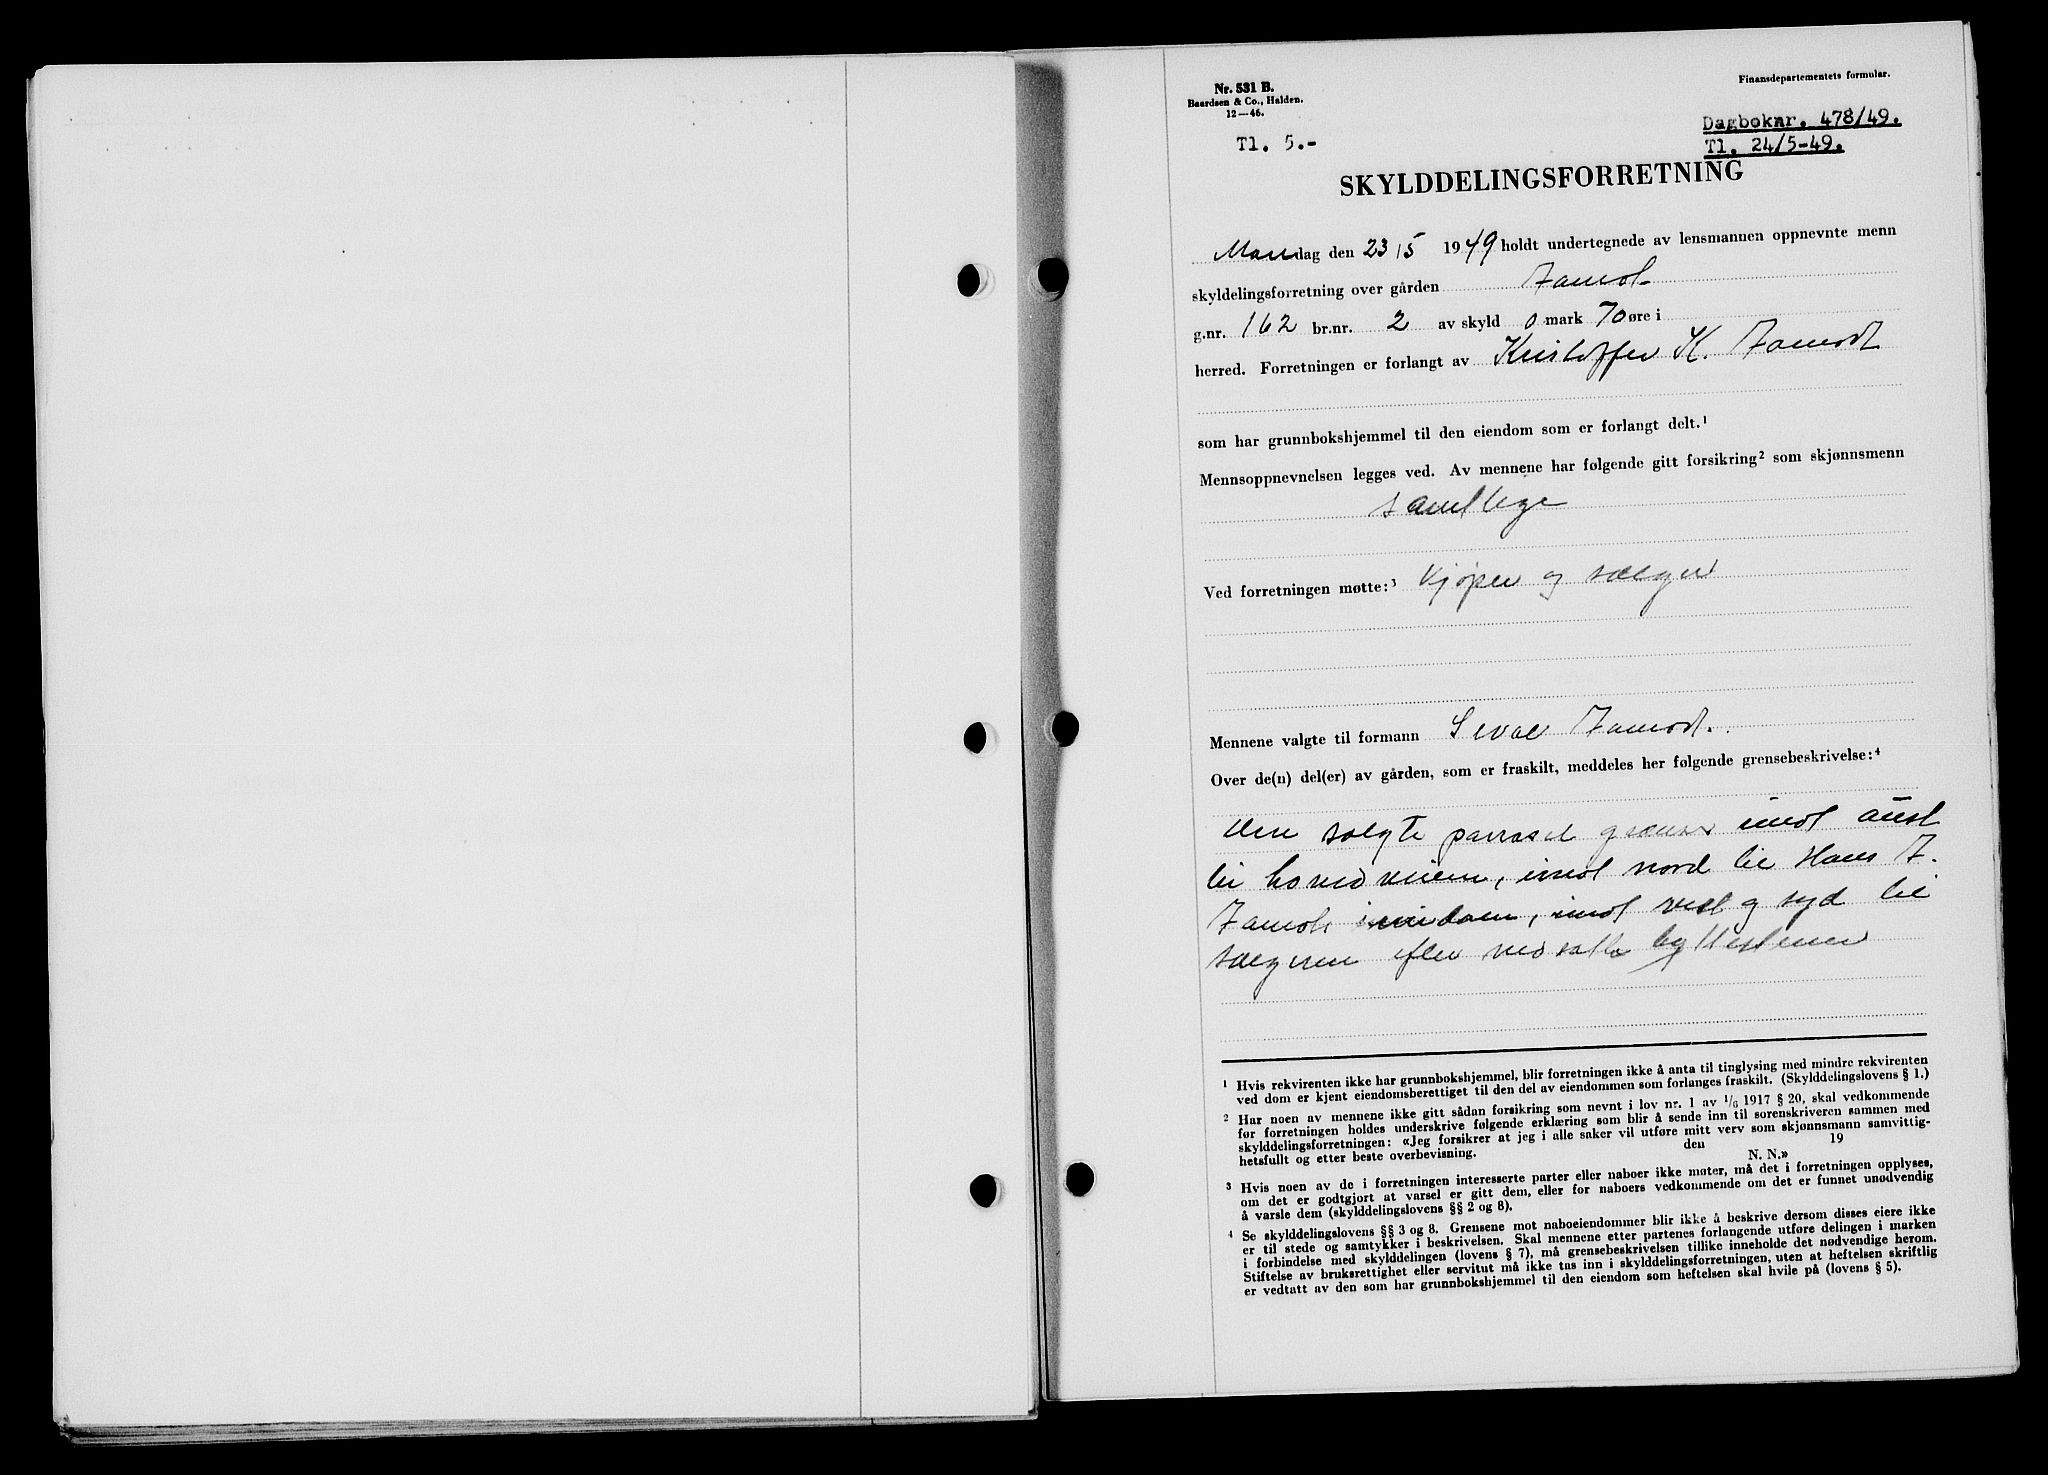 Nr. 531 B.
Baardsen & Co., Halden.
12—46.
Finansdepartementets formular.
Dagboknr. 478/49.
Tl. 24/5-49.
Tl. 5.-
SKYLDDELINGSFORRETNING
Mandag den 23/5 1949 holdt undertegnede av lensmannen oppnevnte menn
skyldelingsforretning over gården
g.nr. 162 br.nr. 2 av skyld 0 mark 70 øre i
herred. Forretningen er forlangt av Kristoffer K.
som har grunnbokshjemmel til den eiendom som er forlangt delt.¹
Mennsoppnevnelsen legges ved. Av mennene har følgende gitt forsikring² som skjønnsmenn
samtlige
Ved forretningen møtte:³ Kjøper og sælger
Mennene valgte til formann
Over de(n) del(er) av gården, som er fraskilt, meddeles her følgende grensebeskrivelse:⁴
den solgte parsel grænser imot aust
til hovedveien, imot nord til Hans
eiendom, imot vest og syd til
sælgeren efter nedsatte byttestener
¹ Hvis rekvirenten ikke har grunnbokshjemmel, blir forretningen ikke å anta til tinglysing med mindre rekvirenten
ved dom er kjent eiendomsberettiget til den del av eiendommen som forlanges fraskilt. (Skylddelingslovens § 1.)
² Har noen av mennene ikke gitt sådan forsikring som nevnt i lov nr. 1 av 1/6 1917 § 20, skal vedkommende
før forretningen holdes underskrive følgende erklæring som blir å sende inn til sorenskriveren sammen med
skylddelingsforretningen: «Jeg forsikrer at jeg i alle saker vil utføre mitt verv som skjønnsmann samvittig-
hetsfullt og etter beste overbevisning. den 19
N. N.»
³ Hvis noen av de i forretningen interesserte parter eller naboer ikke møter, må det i forretningen opplyses,
om det er godtgjort at varsel er gitt dem, eller for naboers vedkommende om det er funnet unødvendig
å varsle dem (skylddelingslovens §§ 2 og 8).
⁴ Se skylddelingslovens §§ 3 og 8. Grensene mot naboeiendommer blir ikke å beskrive dersom disses eiere ikke
er til stede og samtykker i beskrivelsen. Skal mennene etter partenes forlangende utføre delingen i marken
i forbindelse med skylddelingen (lovens § 7), må grensebeskrivelsen tillike inneholde det nødvendige herom.
Stiftelse av bruksrettighet eller servitut må ikke tas inn i skylddelingsforretningen, uten at heftelsen skriftlig
er vedtatt av den som har grunnbokshjemmel til den eiendom som heftelsen skal hvile på (lovens § 5).